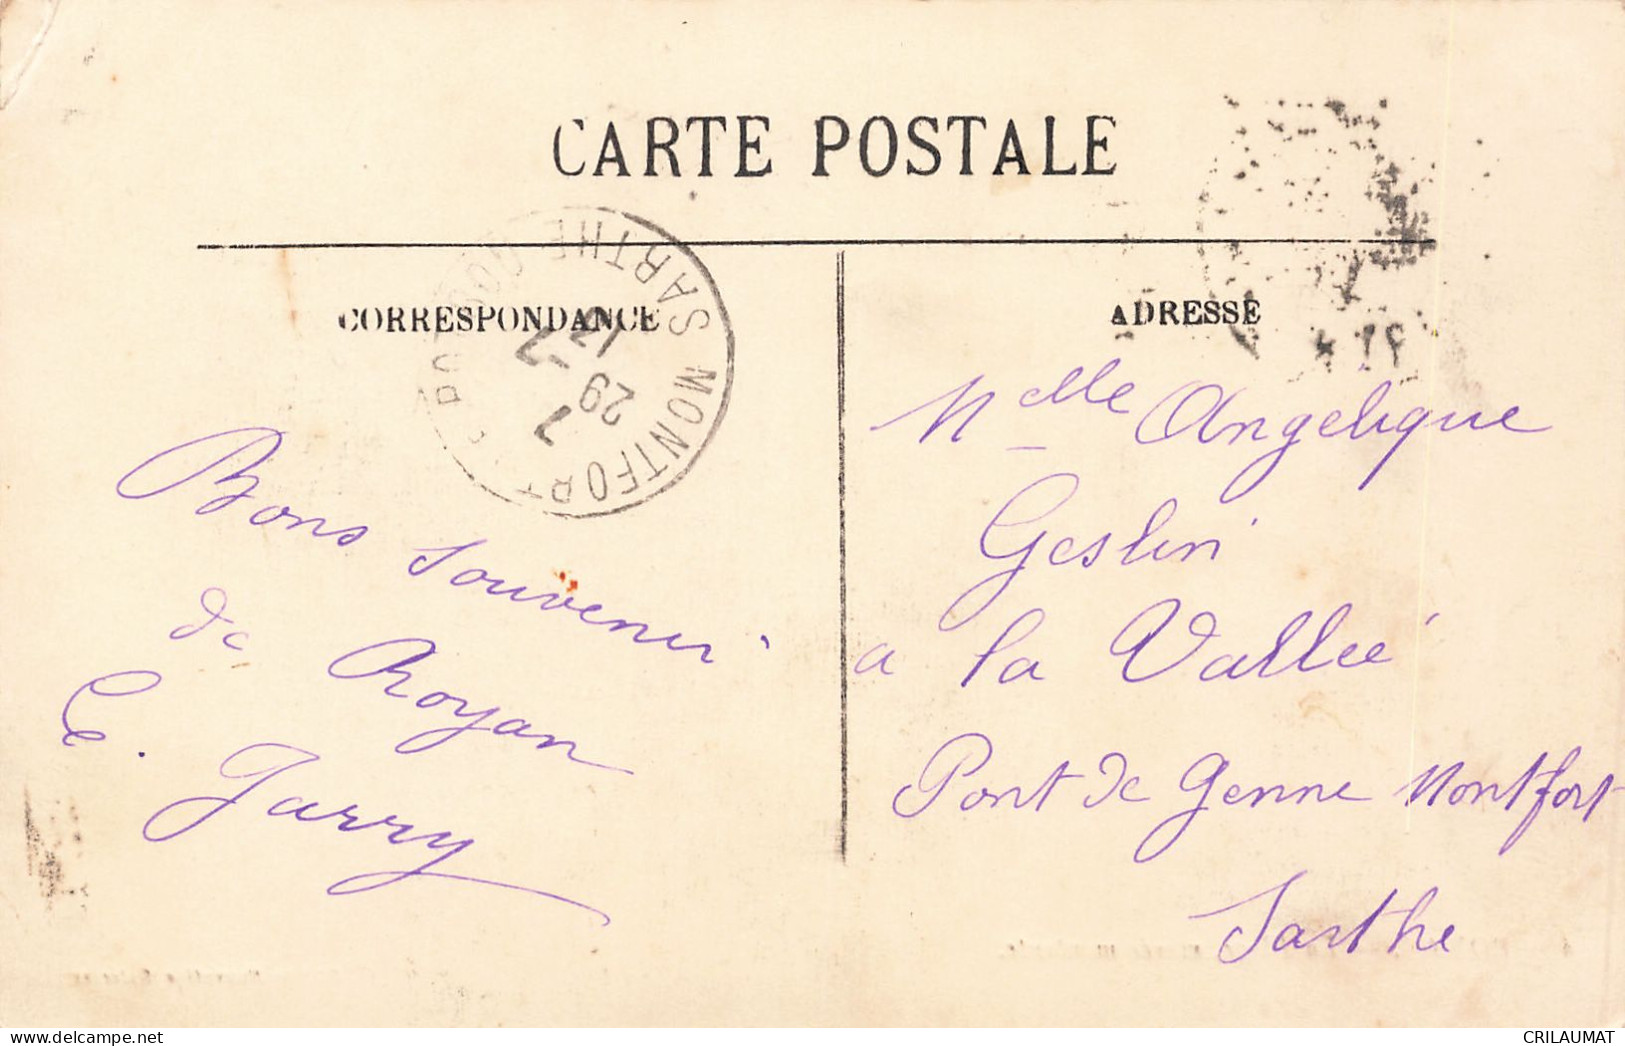 CARTE POSTALE
CORRESPONDANCE
ADRESSE
MONTFORT
SARTHE
7
29 -7
12
Bons souvenir
de Royan
E. Jarry
Melle Angelique
Geslin
a la Vallée
Pont de Genne Montfort
Sarthe
CRILAUMAT